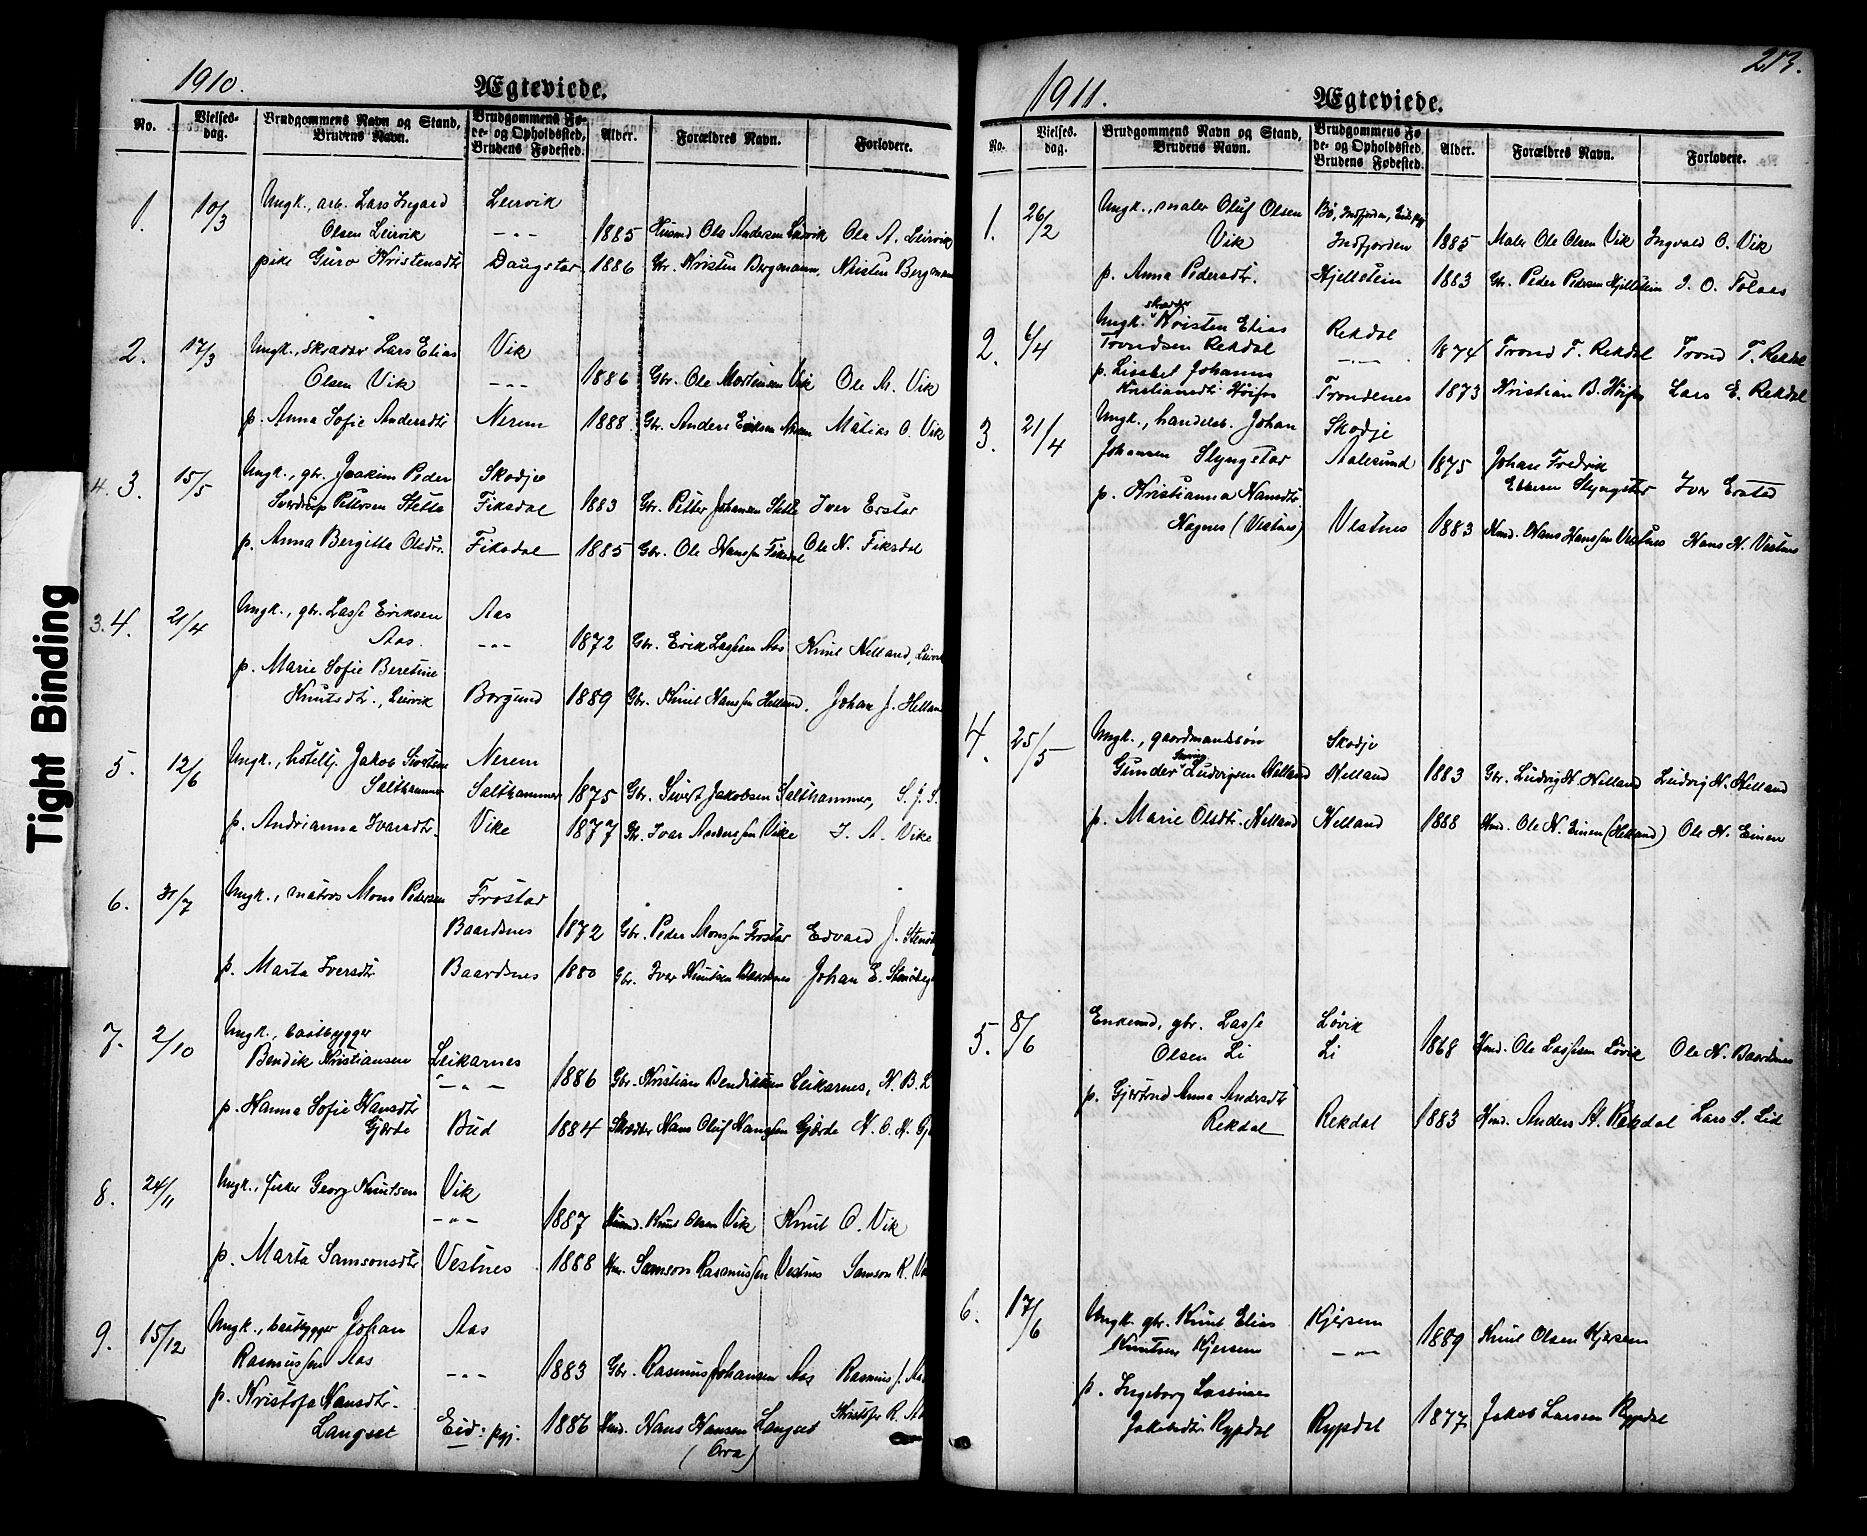 1910.
Ægteviede.
No.
Vielses-
dag.
Brudgommens Navn og Stand,
Brudens Navn.
Brudgommens Fø-
de- og Opholdssted,
Brudens Fødested.
Alder.
Forældres Navn.
Forlovere.
1. 10/3 Ungk., arb. Lars Ingard Leirvik
Olsen Leirvik -"- 1885 Husmd Ole Andersen Leirvik Ole A. Leirvik
pike Guro Kristensdtr Daugstar 1886 Gbr. Kristen Bergmann, Kristen Bergmann
2. 17/3 Ungk., skrædder Lars Elias Vik
Olsen Vik -"- 1886 Gbr. Ole Martinsen Vik Ole M. Vik
p. Anna Sofie Andersdtr Nerem 1888 Gbr. Anders Eriksen Nerem Matias O. Vik
4. 3. 15/5 Ungk., gbr. Joakim Peder Skodje
Sverdrup Pettersen Stette Fiksdal 1883 Gbr. Petter Johansen Stette Iver Erstar
p. Anna Bergitta Olsdtr. Fiksdal 1885 Gbr. Ole Hanssen Fiksdal Ole N. Fiksdal
3. 4. 21/4 Ungk., gbr. Lasse Eriksen Aas
Aas. -"- 1872 Gbr. Erik Lassen Aas Knut Helland, Leirvik
p. Marie Sofie Beretine
Knutsdtr., Leirvik Borgund 1889 Gbr. Knut Hanssen Helland. Johan J. Helland
5. 12/6 Ungk., hotellj. Jakob Sivertsen Nerem
Salthammer Salthammer 1875 Gbr. Sivert Jakobsen Salthammer, S. J. S.
p. Andrianna Ivarsdtr. Vike 1877 Gbr. Ivar Andersen Vike I. A. Vike
6. 31/7 Ungk., matros Mons Pedersen Frostad
Baardsnes 1872 Gbr. Peder Monssen Frostar Edvard J.
p. Marta Iversdtr Baardsnes 1880 Gbr. Iver Knutsen Baardsnes Johan E.
7. 2/10 Ungk., baatbygger
Bendik Kristiansen Leikarnes
-"- 1886 Gbr. Kristian Bendiksen Leikarnes, K. B. L
p. Hanna Sofie Hansdtr
Gjærde Bud 1884 Skrædder Hans Oluf Hanssen Gjærde H. O. H. Gj
8. 24/11 Ungk., fisker Georg Knutsen Vik
-"- 1887 Husmd. Knut Olsen Vik Knut O. Vik
p. Marta Samsonsdtr Vestnes 1888 Hm. Samson Rasmussen Vestnes Samson R. Ve
9. 15/12 Ungk., baatbygger Johan Aas
Rasmussen Aas -"- 1883 Gbr. Rasmus Johansen Aas Rasmus J. Aas
p. Kristofa Hansdtr.
Langset Eid: pgj. 1886 Hmd. Hans Hansen Langset Kristofer R. Aa
(Øra)
1911.
Ægteviede.
213.
No.
Vielses-
dag.
Brudgommens Navn og Stand,
Brudens Navn.
Brudgommens Fø-
de- og Opholdssted,
Brudens Fødested.
Alder.
Forældres Navn.
Forlovere.
1. 26/2 Ungk., maler Oluf Olsen Bø, Indfjorden, Eids pgj
Vik Indfjorden 1885 Maler Ole Olsen Vik Ingvald O. Vik
p. Anna Pedersdtr. Hjeltstein 1883 Gbr. Peder Pedersen Hjeltstein I. O. Tolaas
2. 6/4 Ungk. skrædder Kristen Elias Rekdal
Trondsen Rekdal -"- 1874 Trond T. Rekdal Trond T. Rekdal
p. Lisabet Johanna
Kristiansdtr. Høifos Trondenes 1873 Kristian B. Høifos Lars E. Rekdal
3. 21/4 Ungk., handelsb. Johan Skodje
Johansen Slyngstar Aalesund 1875 Johan Fredrik
Ellesen Slyngstar Iver Ersted
p. Kristianna Hansdtr.
Hagnes (Vestnes) Vestnes 1883 Hmd. Hans Hanssen Vestnes Hans H. Vestnes
4. 25/5 Ungk., gaardmandssøn Skodje
Gunder Ludvigsen Helland Helland 1883 Gbr. Ludvig H. Helland Ludvig H. Helland
p. Marie Olsdtr. Helland Helland 1888 Hmd. Ole N. Einen (Helland) Ole N. Einen
5. 8/6 Enkemd, gbr. Lasse Løvik
Olsen Li Li 1868 Hmd. Ole Lassesen Løvik Ole N. Baardsnes
p. Gjertrud Anna Andersdtr
Rekdal Rekdal 1883 Hmd. Anders A. Rekdal Lars S. Lid
6. 17/6 Ungk. gbr. Knut Elias Kjersem
Knutsen Kjersem -"- 1889 Knut Olsen Kjersem
p. Ingeborg Lassine
Jakobsdtr. Rypdal Rypdal 1877 Jakob Larsen Rypdal
Tight Binding